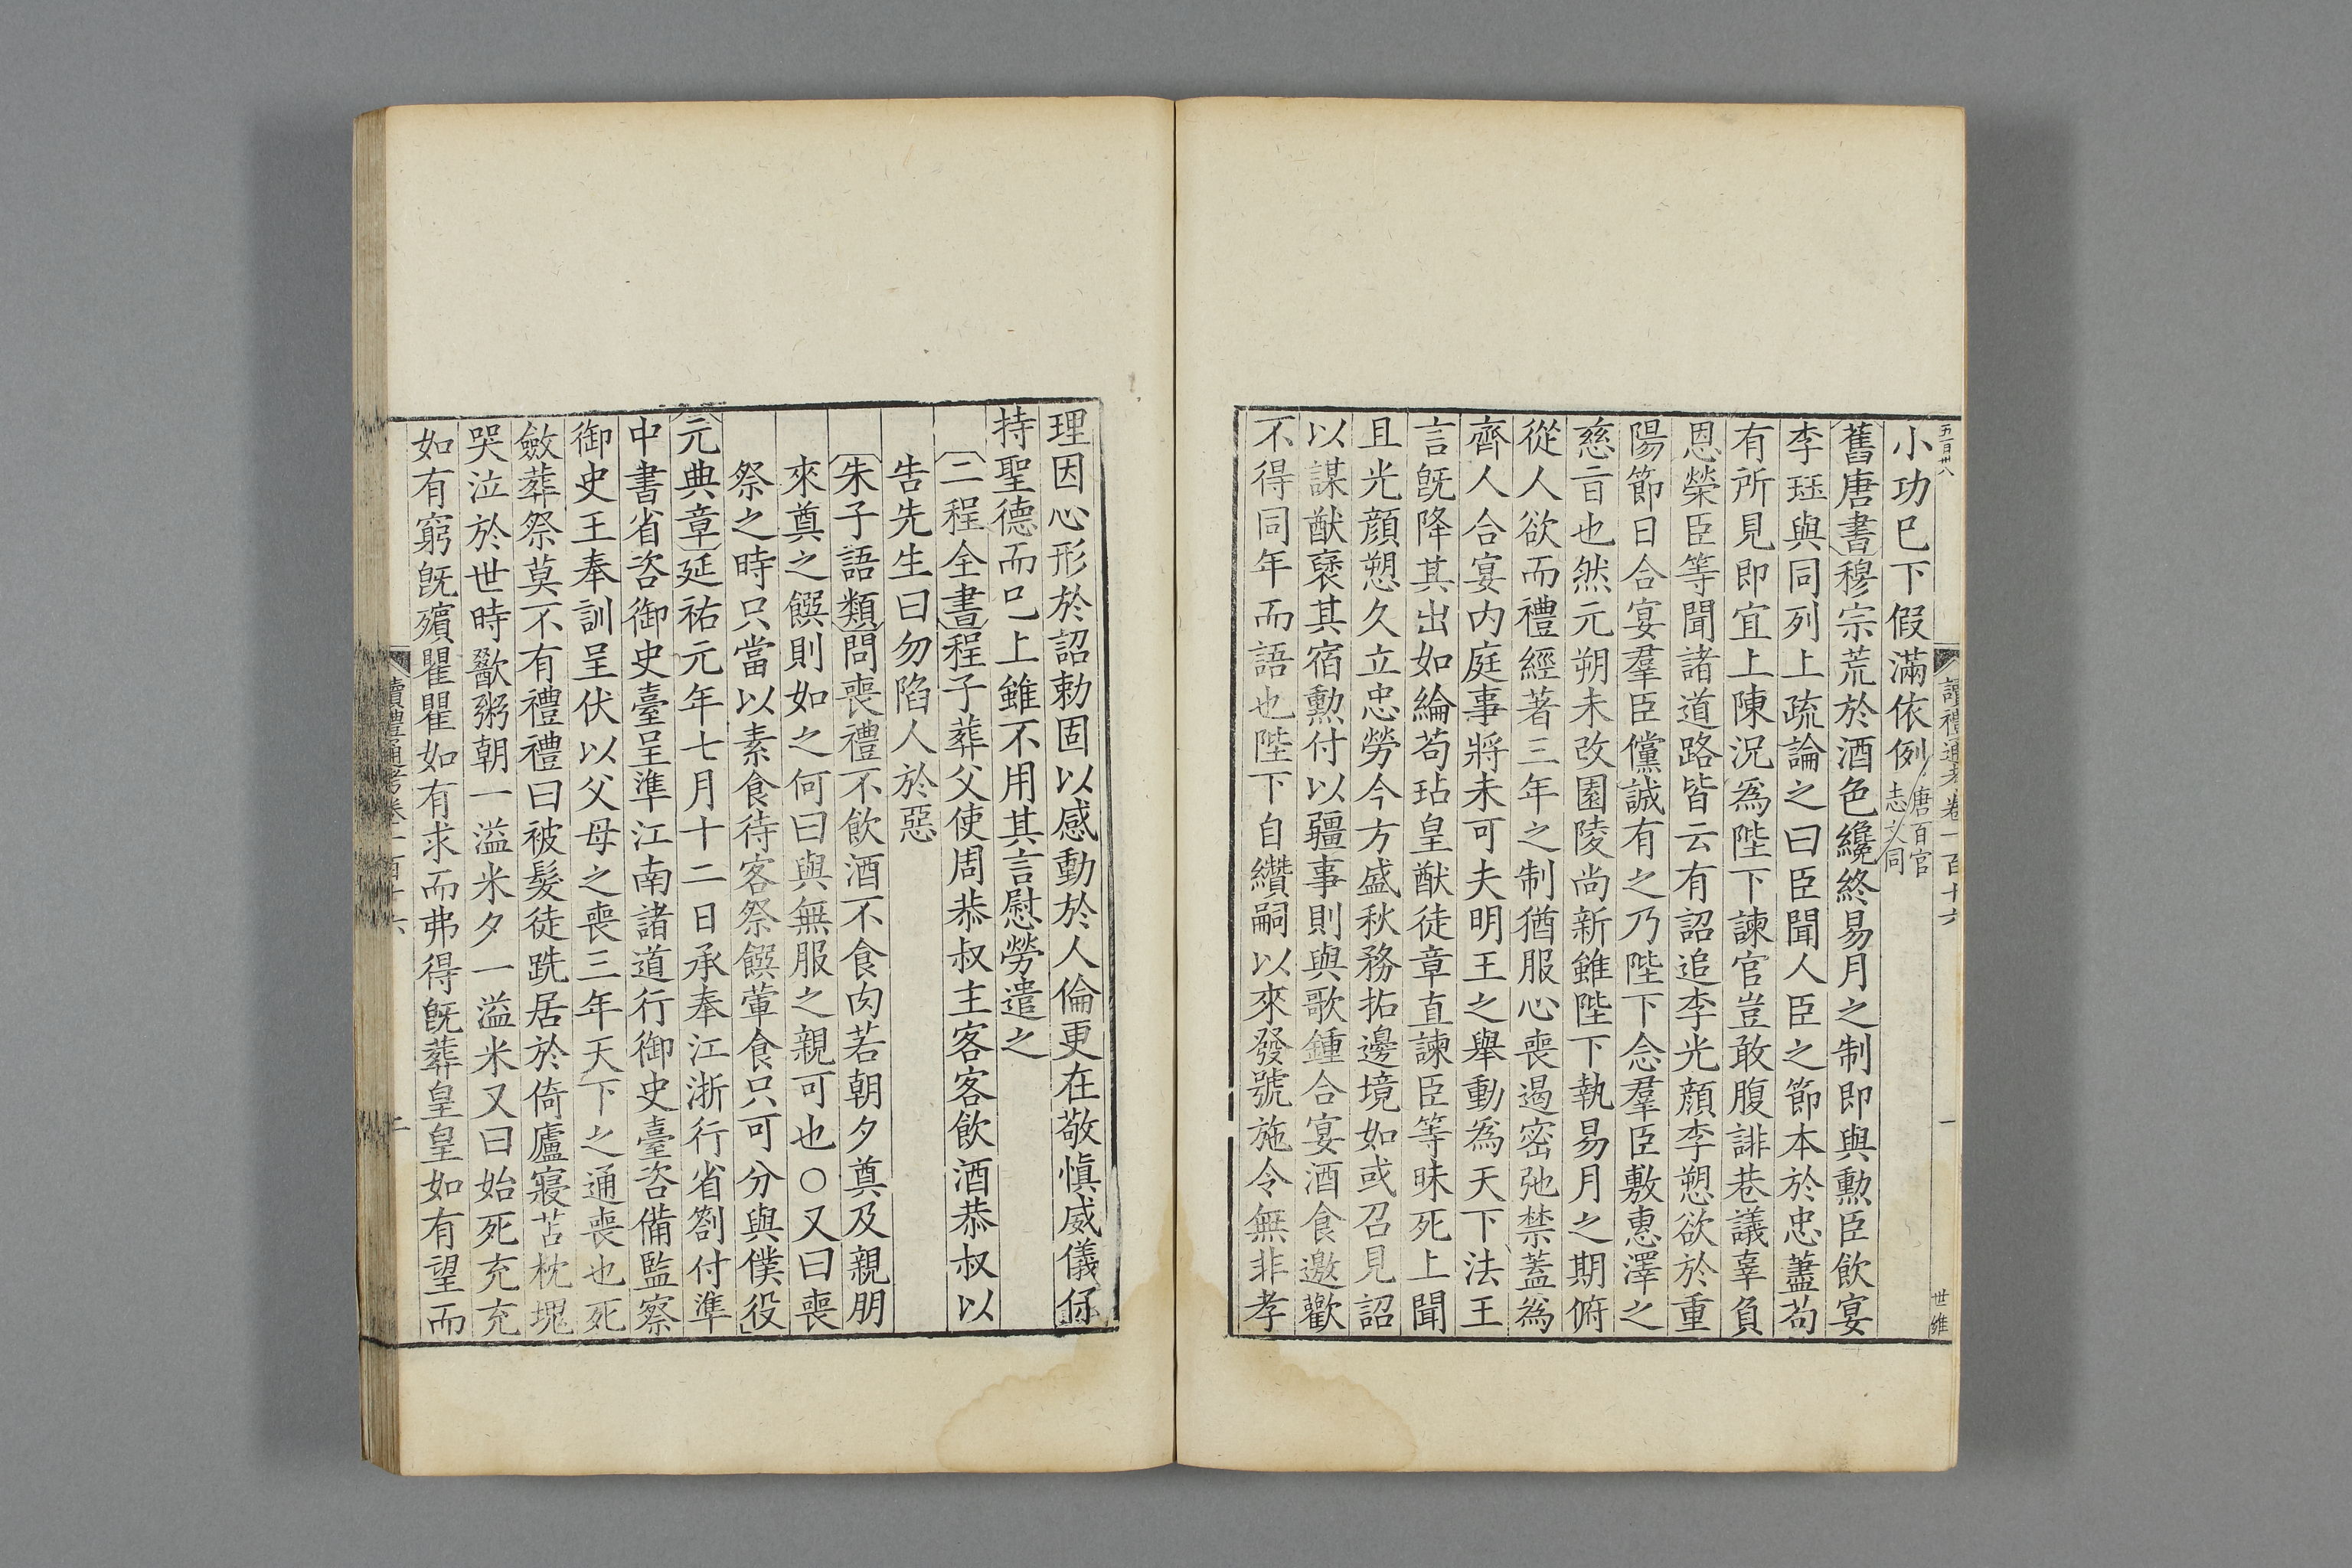 五百卅八
讀禮通考卷一百十六
一
世維
小功已下假滿依例唐百官志文同
舊唐書穆宗荒於酒色纔終易月之制即與勲臣飲宴
李珏與同列上疏論之曰臣聞人臣之節本於忠藎苟
有所見即宜上陳況爲陛下諫官豈敢腹誹巷議辜負
恩榮臣等聞諸道路皆云有詔追李光顔李愬欲於重
陽節日合宴羣臣儻誠有之乃陛下念羣臣敷惠澤之
慈旨也然元朔未改園陵尚新雖陛下執易月之期俯
從人欲而禮經著三年之制猶服心喪遏密弛禁蓋爲
齊人合宴内庭事將未可夫明王之舉動爲天下法王
言旣降其出如綸苟玷皇猷徒章直諫臣等昧死上聞
且光顔愬久立忠勞今方盛秋務拓邊境如或召見詔
以謀猷襃其宿勲付以疆事則與歌鍾合宴酒食邀歡
不得同年而語也陛下自纘嗣以來發號施令無非孝
理因心形於詔勅固以感動於人倫更在敬愼威儀保
持聖德而已上雖不用其言慰勞遣之
二程全書程子葬父使周恭叔主客客飲酒恭叔以
告先生曰勿陷人於惡
朱子語類問喪禮不飲酒不食肉若朝夕奠及親朋
來奠之饌則如之何曰與無服之親可也○又曰喪
祭之時只當以素食待客祭饌葷食只可分與僕役
元典章延祐元年七月十二日承奉江浙行省劄付準
中書省咨御史臺呈準江南諸道行御史臺咨備監察
御史王奉訓呈伏以父母之喪三年天下之通喪也死
斂葬祭莫不有禮禮曰被髮徒跣居於倚廬寢苫枕塊
哭泣於世時歠粥朝一溢米夕一溢米又曰始死充充
如有窮旣殯瞿瞿如有求而弗得旣葬皇皇如有望而
讀禮通考卷一百十六
二